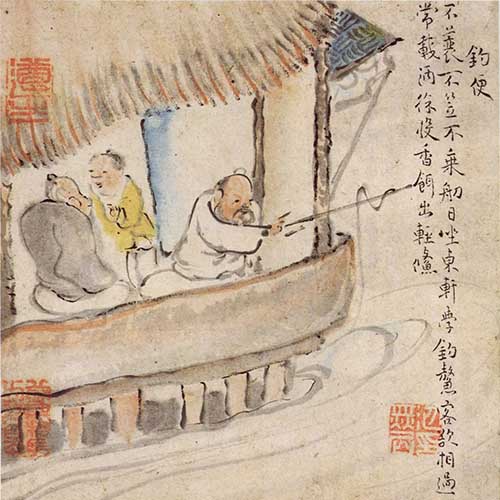 釣便
不蓑不笠不乘舠日坐東軒学釣鰲客欲相過
常載酒徐投香餌出輕鯈